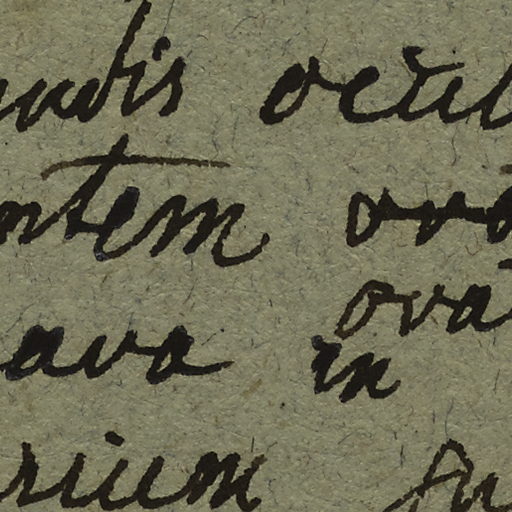 undis ocul
ntem ovo
ova
ava in
rium su